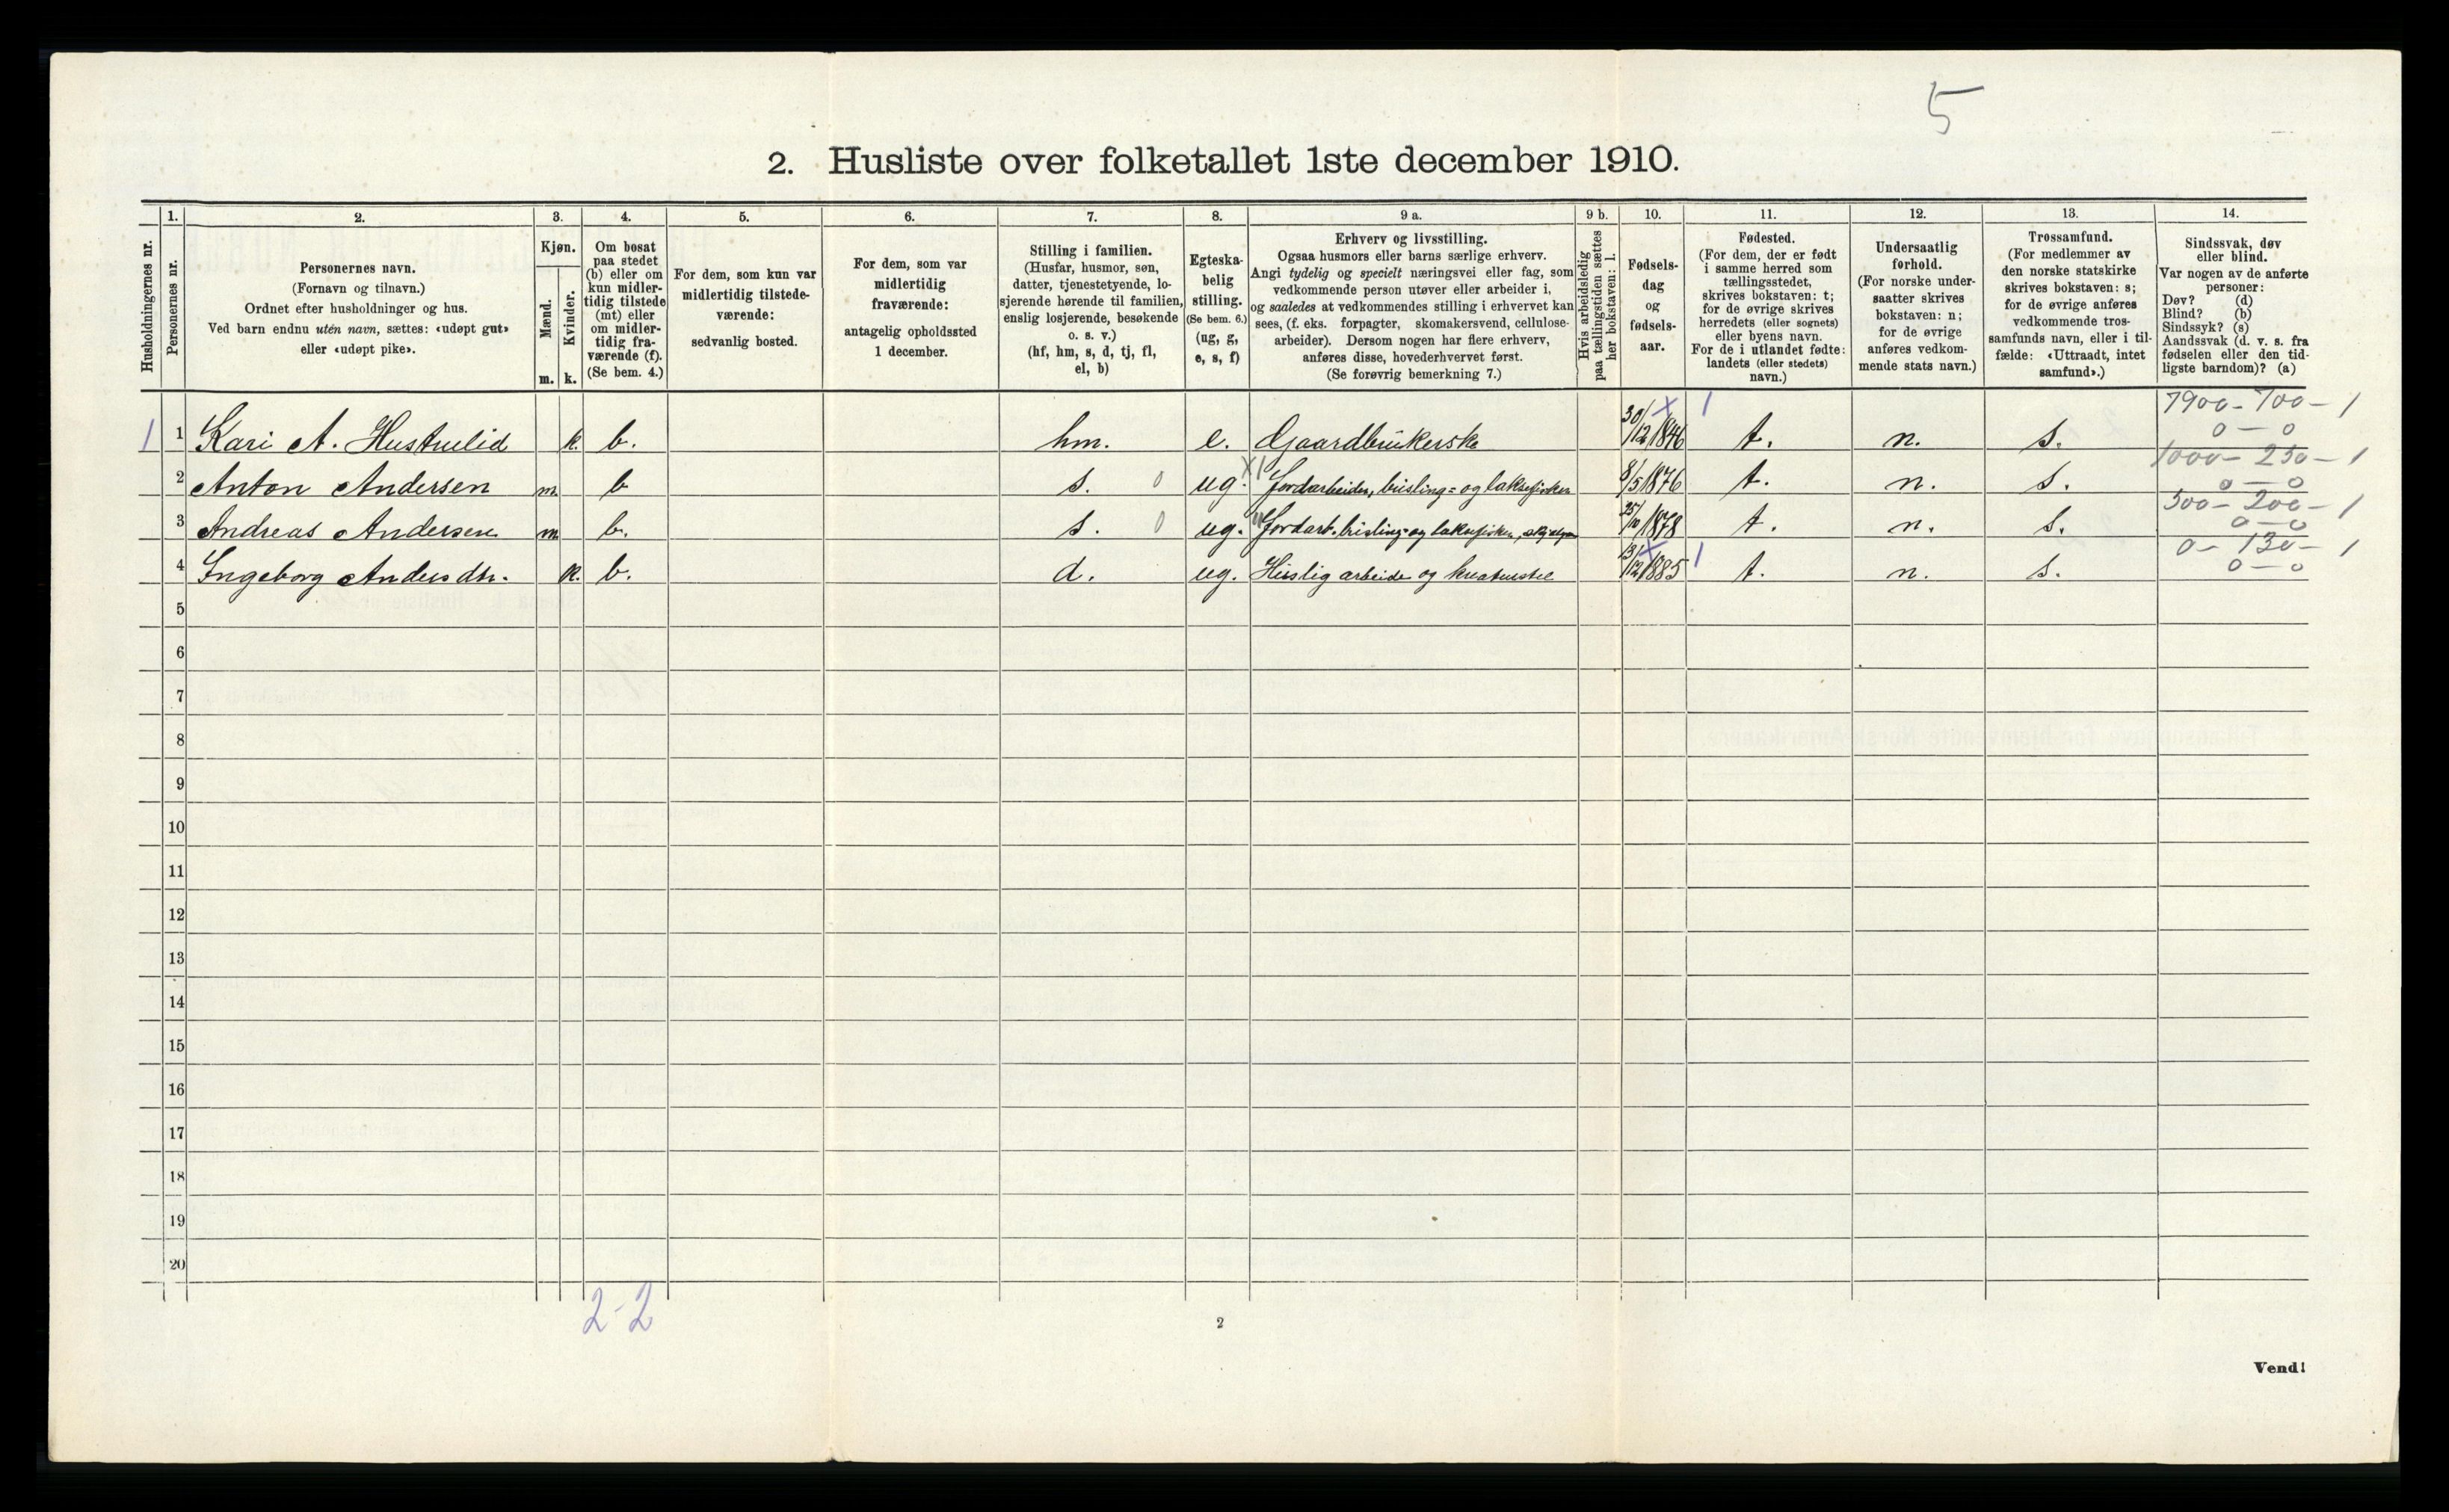 5
2. Husliste over folketallet 1ste december 1910.
Husholdningernes nr.
1.
Personernes nr.
2.
Personernes navn.
(Fornavn og tilnavn.)
Ordnet efter husholdninger og hus.
Ved barn endnu uten navn, sættes: «udøpt gut»
eller «udøpt pike».
3.
Kjøn.
Mænd.
Kvinder.
m. k.
4.
Om bosat
paa stedet
(b) eller om
kun midler-
tidig tilstede
(mt) eller
om midler-
tidig fra-
værende (f).
(Se bem. 4.)
5.
For dem, som kun var
midlertidig tilstede-
værende:
sedvanlig bosted.
6.
For dem, som var
midlertidig
fraværende:
antagelig opholdssted
1 december.
7.
Stilling i familien.
(Husfar, husmor, søn,
datter, tjenestetyende, lo-
sjerende hørende til familien,
enslig losjerende, besøkende
o. s. v.)
(hf, hm, s, d, tj, fl,
el, b)
8.
Egteska-
belig
stilling.
(Se bem. 6.)
(ug, g,
e, s, f)
9 a.
Erhverv og livsstilling.
Ogsaa husmors eller barns særlige erhverv.
Angi tydelig og specielt næringsvei eller fag, som
vedkommende person utøver eller arbeider i,
og saaledes at vedkommendes stilling i erhvervet kan
sees, (f. eks. forpagter, skomakersvend, cellulose-
arbeider). Dersom nogen har flere erhverv,
anføres disse, hovederhvervet først.
(Se forøvrig bemerkning 7.)
9 b.
Hvis arbeidsledig
paa tællingstiden sættes
her bokstaven: l.
10.
Fødsels-
dag
og
fødsels-
aar.
11.
Fødested.
(For dem, der er født
i samme herred som
tællingsstedet,
skrives bokstaven: t;
for de øvrige skrives
herredets (eller sognets)
eller byens navn.
For de i utlandet fødte:
landets (eller stedets)
navn.)
12.
Undersaatlig
forhold.
(For norske under-
saatter skrives
bokstaven: n;
for de øvrige
anføres vedkom-
mende stats navn.)
13.
Trossamfund.
(For medlemmer av
den norske statskirke
skrives bokstaven: s;
for de øvrige anføres
vedkommende tros-
samfunds navn, eller i til-
fælde: «Uttraadt, intet
samfund».)
14.
Sindssvak, døv
eller blind.
Var nogen av de anførte
personer:
Døv? (d)
Blind? (b)
Sindssyk? (s)
Aandssvak (d. v. s. fra
fødselen eller den tid-
ligste barndom)? (a)
1 1 Kari A. Hustvelid k. b. hm. e. Gaardbrukerske 30/12 1846 t. n. s. 7900-700-1 0-0
2 Anton Andersen m b s. 0 ug. Jordarbeider, brisling= og laksefisker 8/5 1876 t. n. s. 1000-250-1 0-0
3 Andreas Andersen m b. s. 0 ug. Jordarb. brisling= og laksefisker, 25/10 1878 t. n. s. 500-200-1 0-0
4 Ingeborg Andersdtr. k. b. d. ug. Huslig arbeide og kreaturstel 13/12 1885 t. n. s. 0-130-1 0-0
5
6
7
8
9
10
11
12
13
14
15
16
17
18
19
20
2-2
2
Vend!